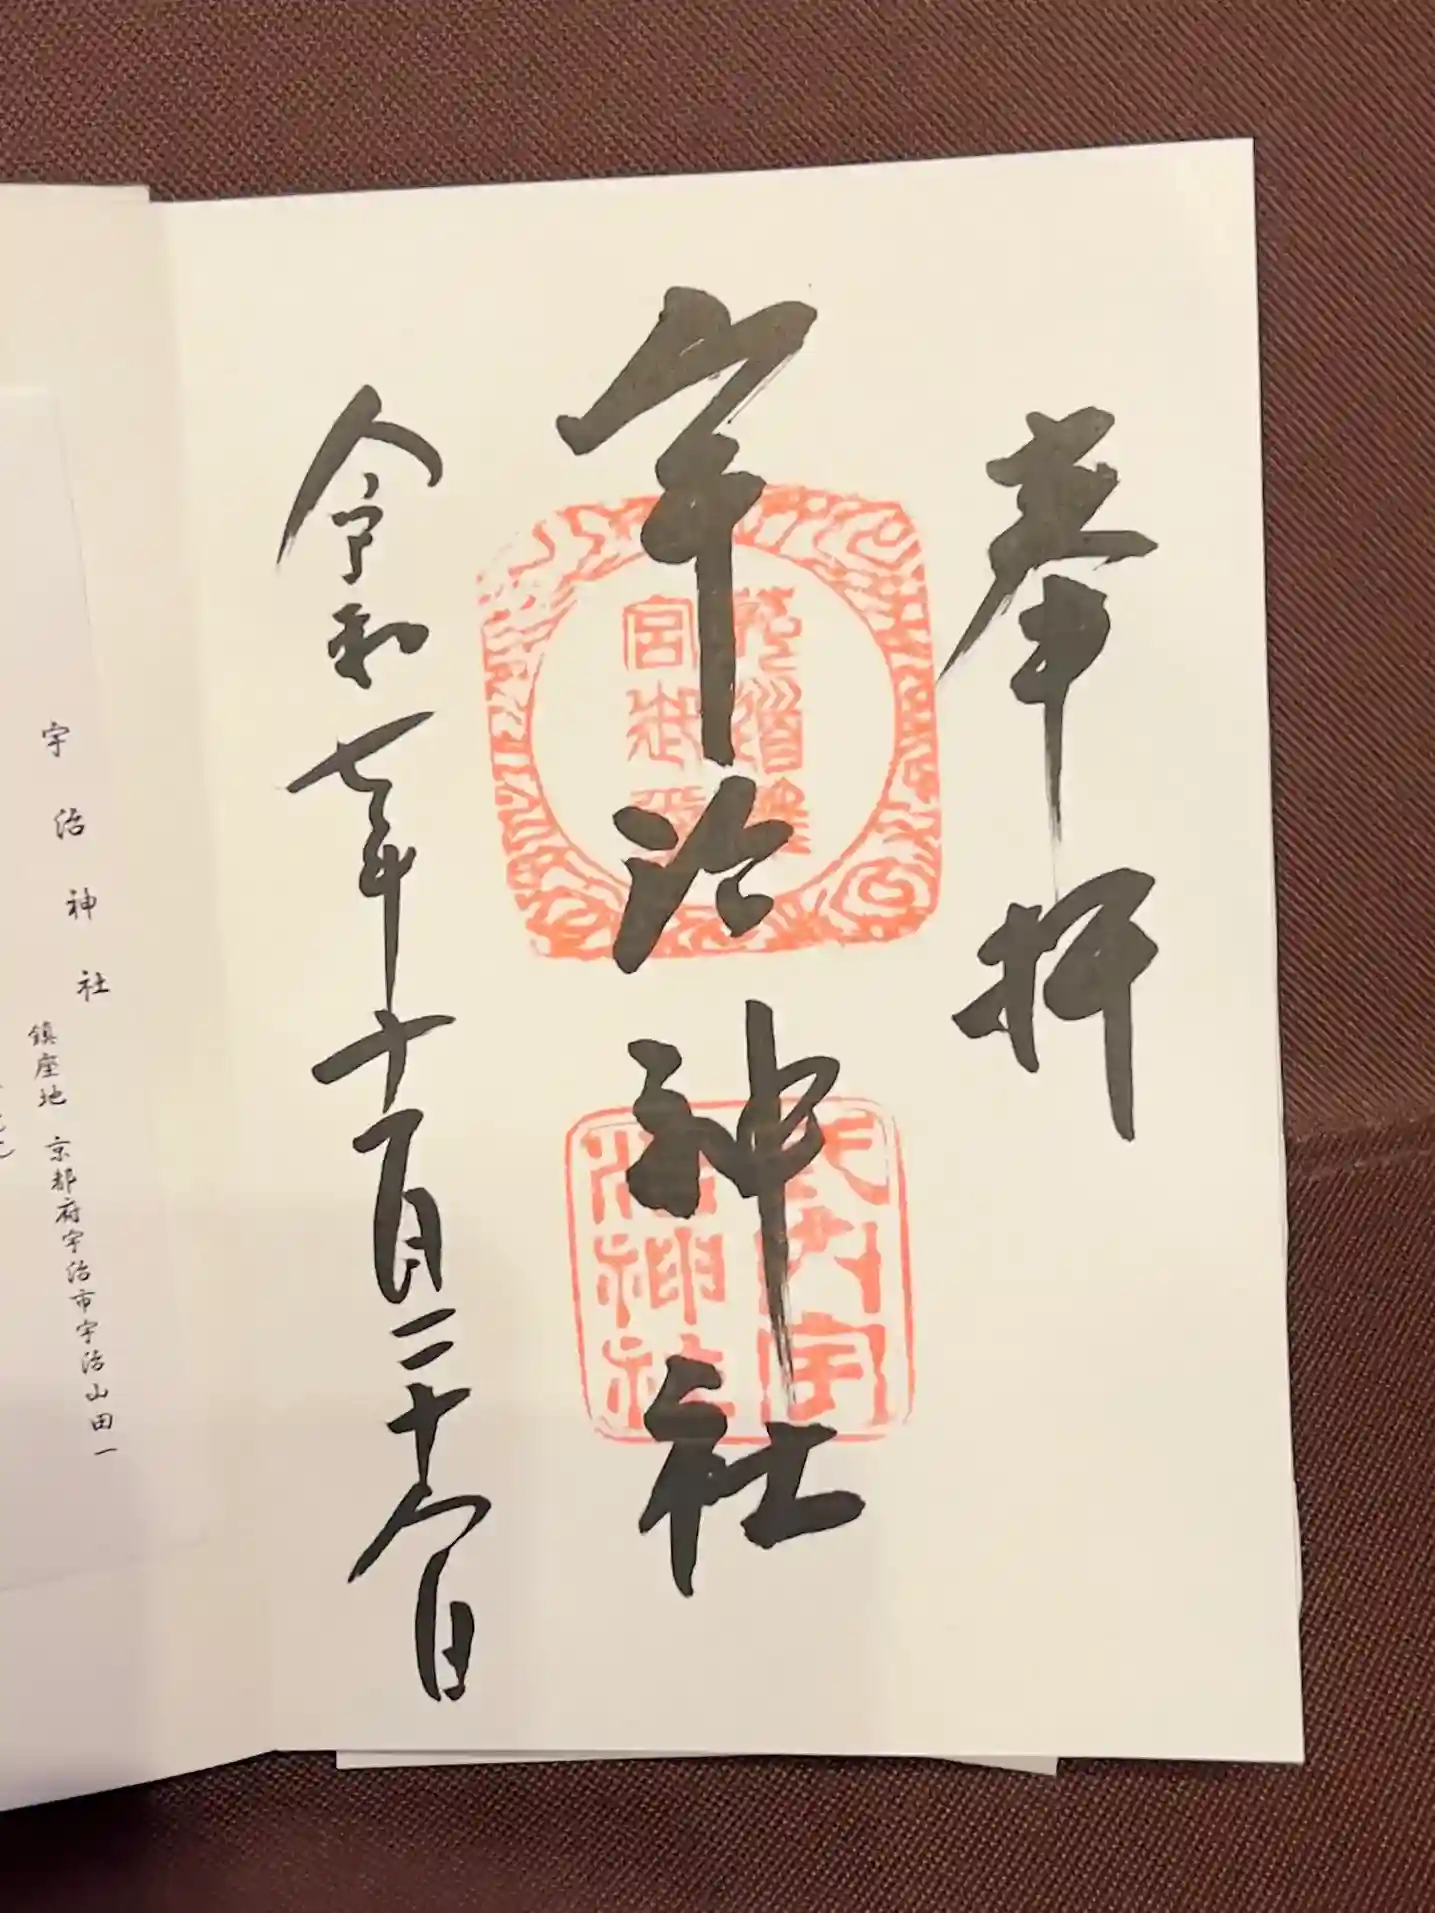 奉拝
宇治神社
令和七年十一月二十八日
式内宇
治神社
宇治神社
鎮座地 京都府宇治市宇治山田一